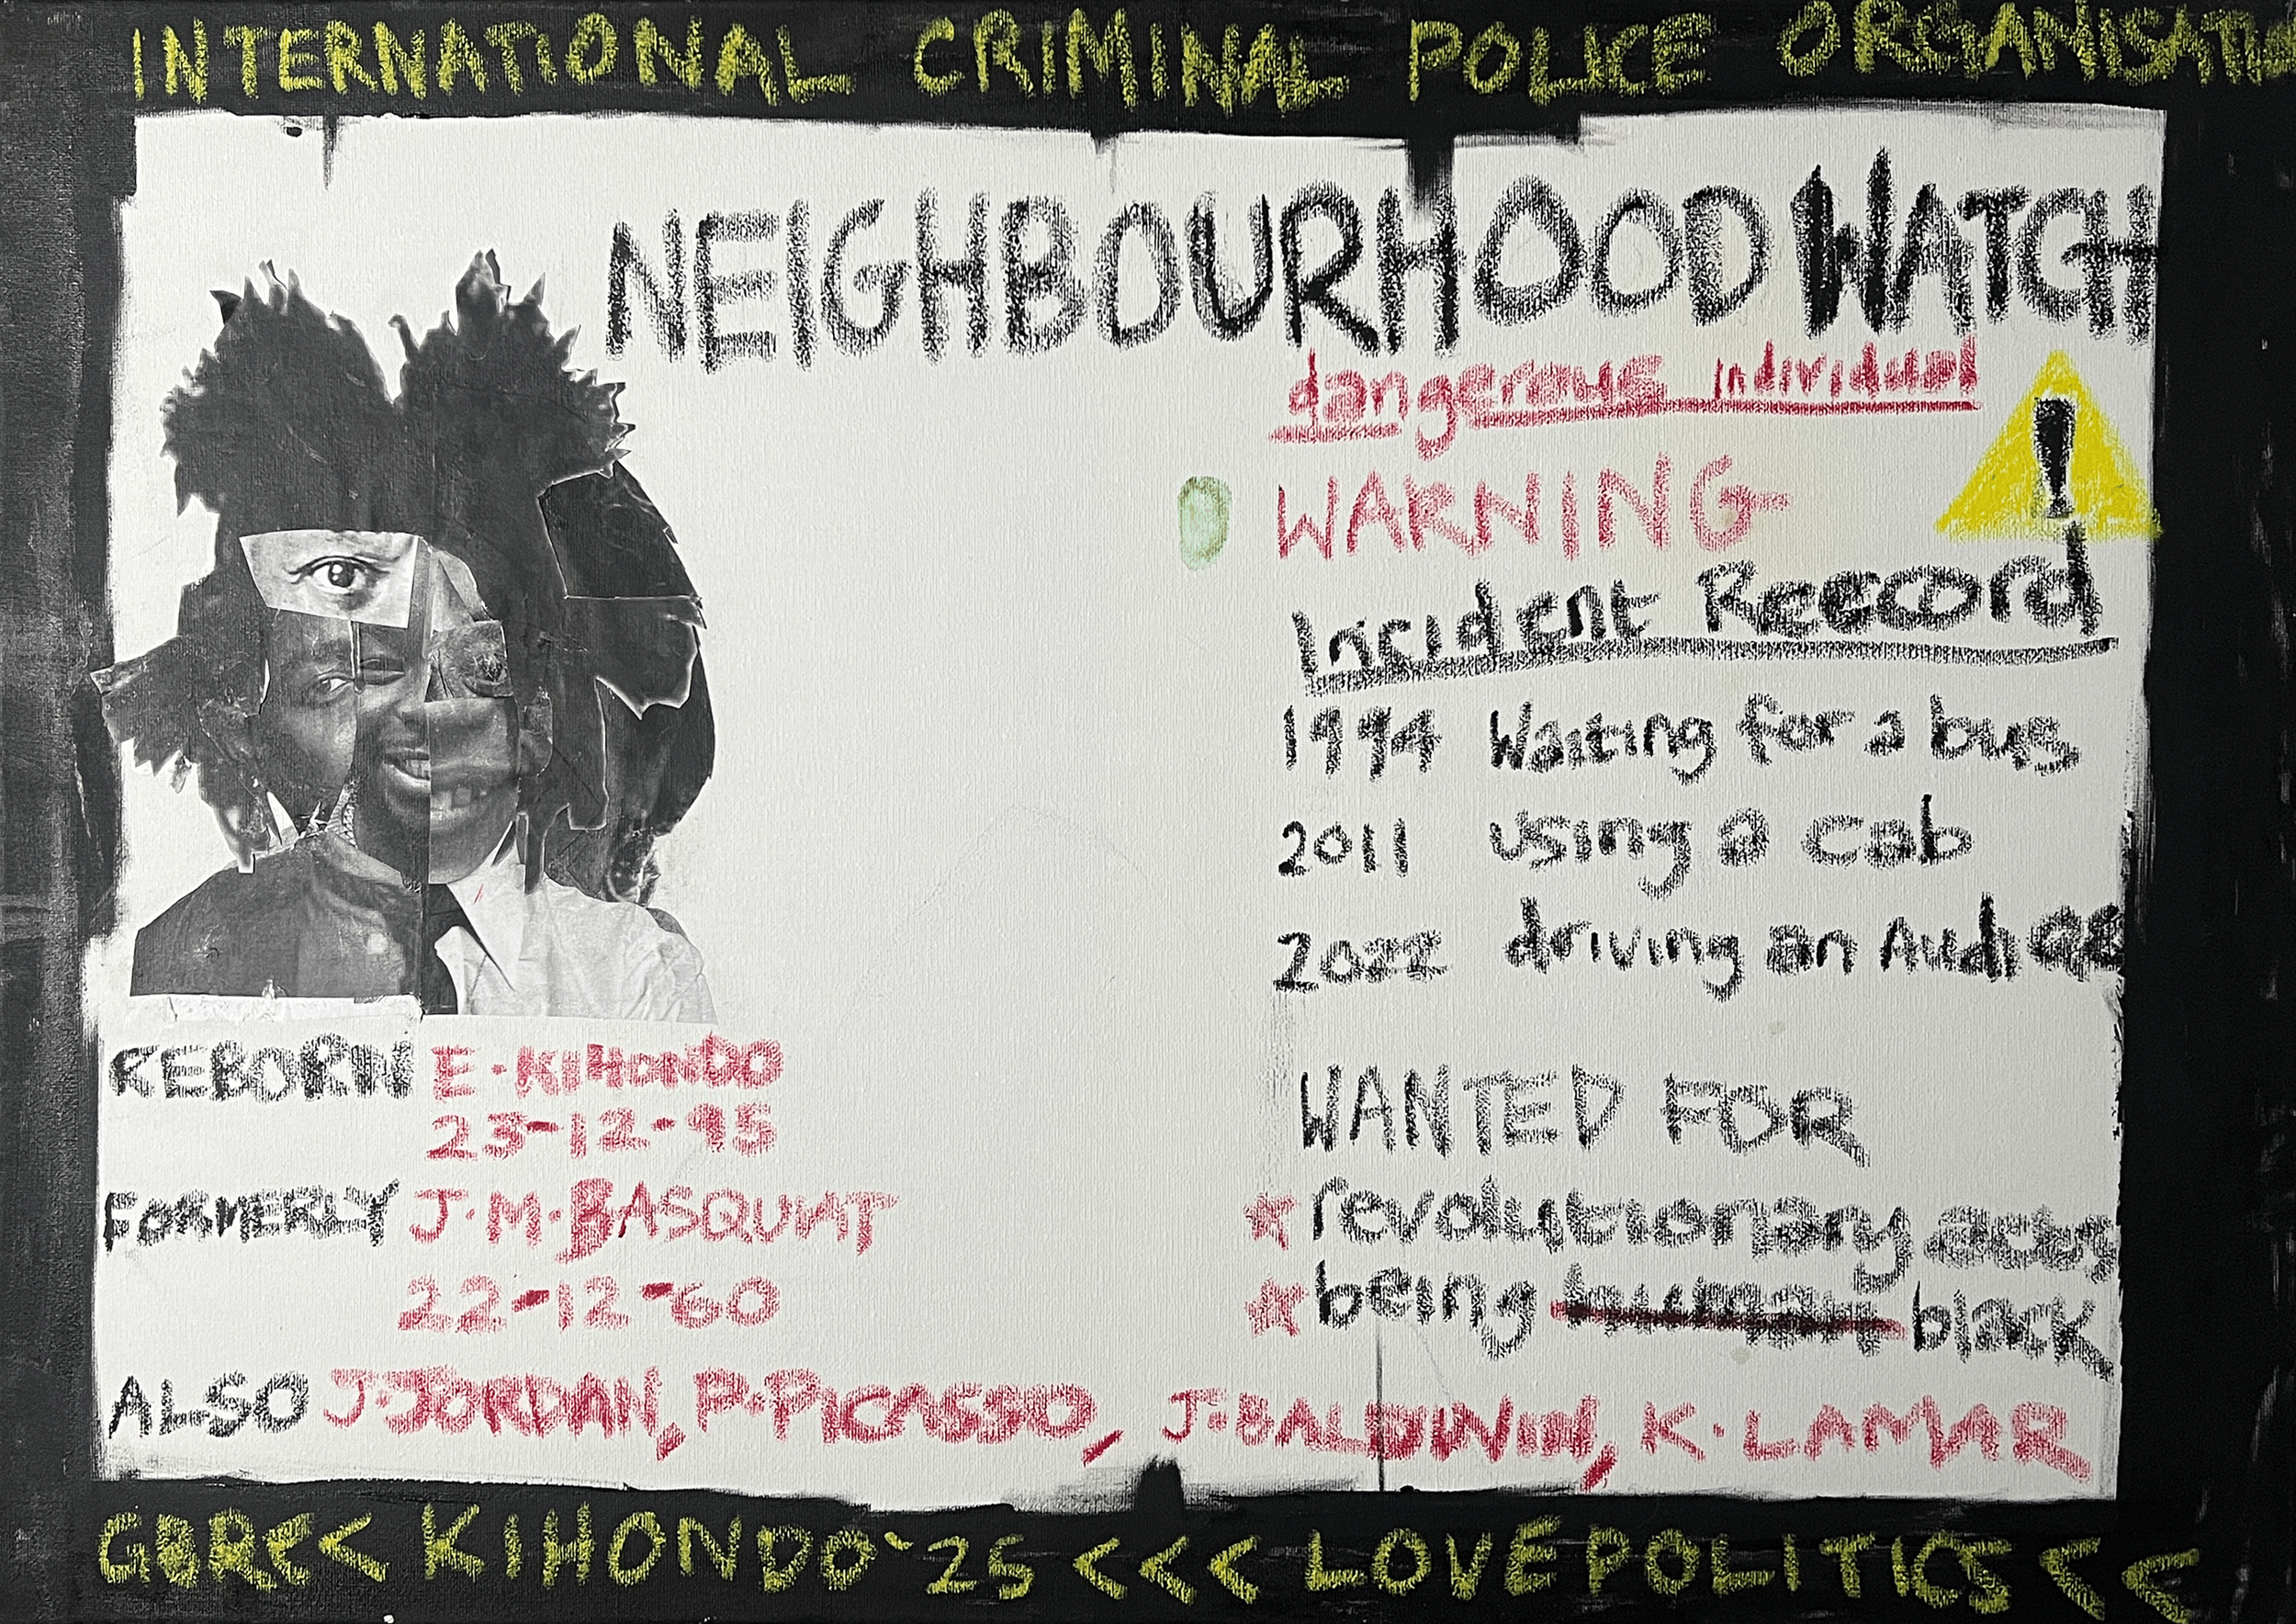 INTERNATIONAL CRIMINAL POLICE ORGANISATIO
NEIGHBOURHOOD WATCH
dangerous individual
WARNING
!
Incident Record
1994 Waiting for a bus
2011 using a cab
2022 driving an Audi
REBORN E·KIHONDO
23-12-95
FORMERLY J·M·BASQUIAT
22-12-60
WANTED FOR
revolutionary acts
being human black
ALSO J·JORDAN, P·PICASSO, J·BALDWIN, K·LAMAR
GBR<< KIHONDO '25 <<< LOVEPOLITICS <<